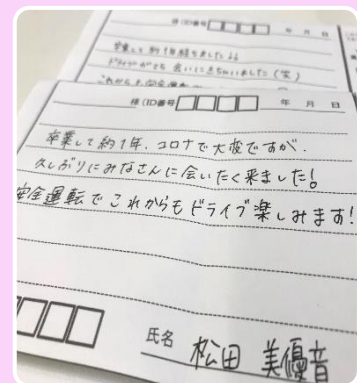 様(ID番号 年 月 日
卒業して約1年経ちました
ドライブがてら会いにきちゃいました(笑)
これからも安全運転
様(ID番号 年 月 日
卒業して約1年、コロナで大変ですが、
久しぶりにみなさんに会いたく来ました!
安全運転でこれからもドライブ楽しみます!
氏名 松田 美優音